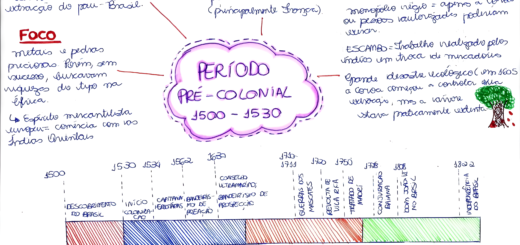 extração do pau-Brasil.
(principalmente França)
monopólio régio = apenas a coroa
ou pessoas autorizadas poderiam
FOCO
metais e pedras
preciosas. Porém, sem
sucesso, buscavam
riquezas do tipo na
África.
↳ Espírito mercantilista
europeu = comércio com as
Índias Orientais
PERÍODO
PRÉ-COLONIAL
1500 - 1530
ESCAMBO = Trabalho realizado pelos
índios em troca de mercadorias
Grande desastre ecológico (em 1605
a coroa começou a controlar essa
extração, mas a árvore
estava praticamente extinta)
1500
1530
1534
1562
1630
1710-
1711
1720
1750
1798
1808
1822
DESCOBRIMENTO
DO BRASIL
INÍCIO
COLONIZA-
ÇÃO
CAPITANIAS
HEREDITÁRIAS
BANDEIRIS-
MO DE
PREAÇÃO
CONSELHO
ULTRAMARINO
BANDEIRISMO DE
PROSPECÇÃO
GUERRA DOS
MASCATES
REVOLTA DE
VILA RICA
TRATADO DE
MADRI
CONJURAÇÃO
BAIANA
DOM JOÃO VI
NO BRASIL
INDEPENDÊNCIA
DO BRASIL